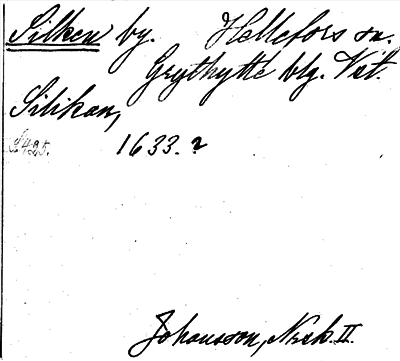 Silken by. Hellefors sn.
Grythytte blg. Vstl.
Silikan,
S. 425. 1633.?
Johansson, Norsk. II.